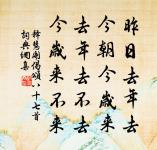 昨日去年去
今朝今歲來
去年去不去
今歲來不來
釋慧開偈頌八十七首
詞典網集